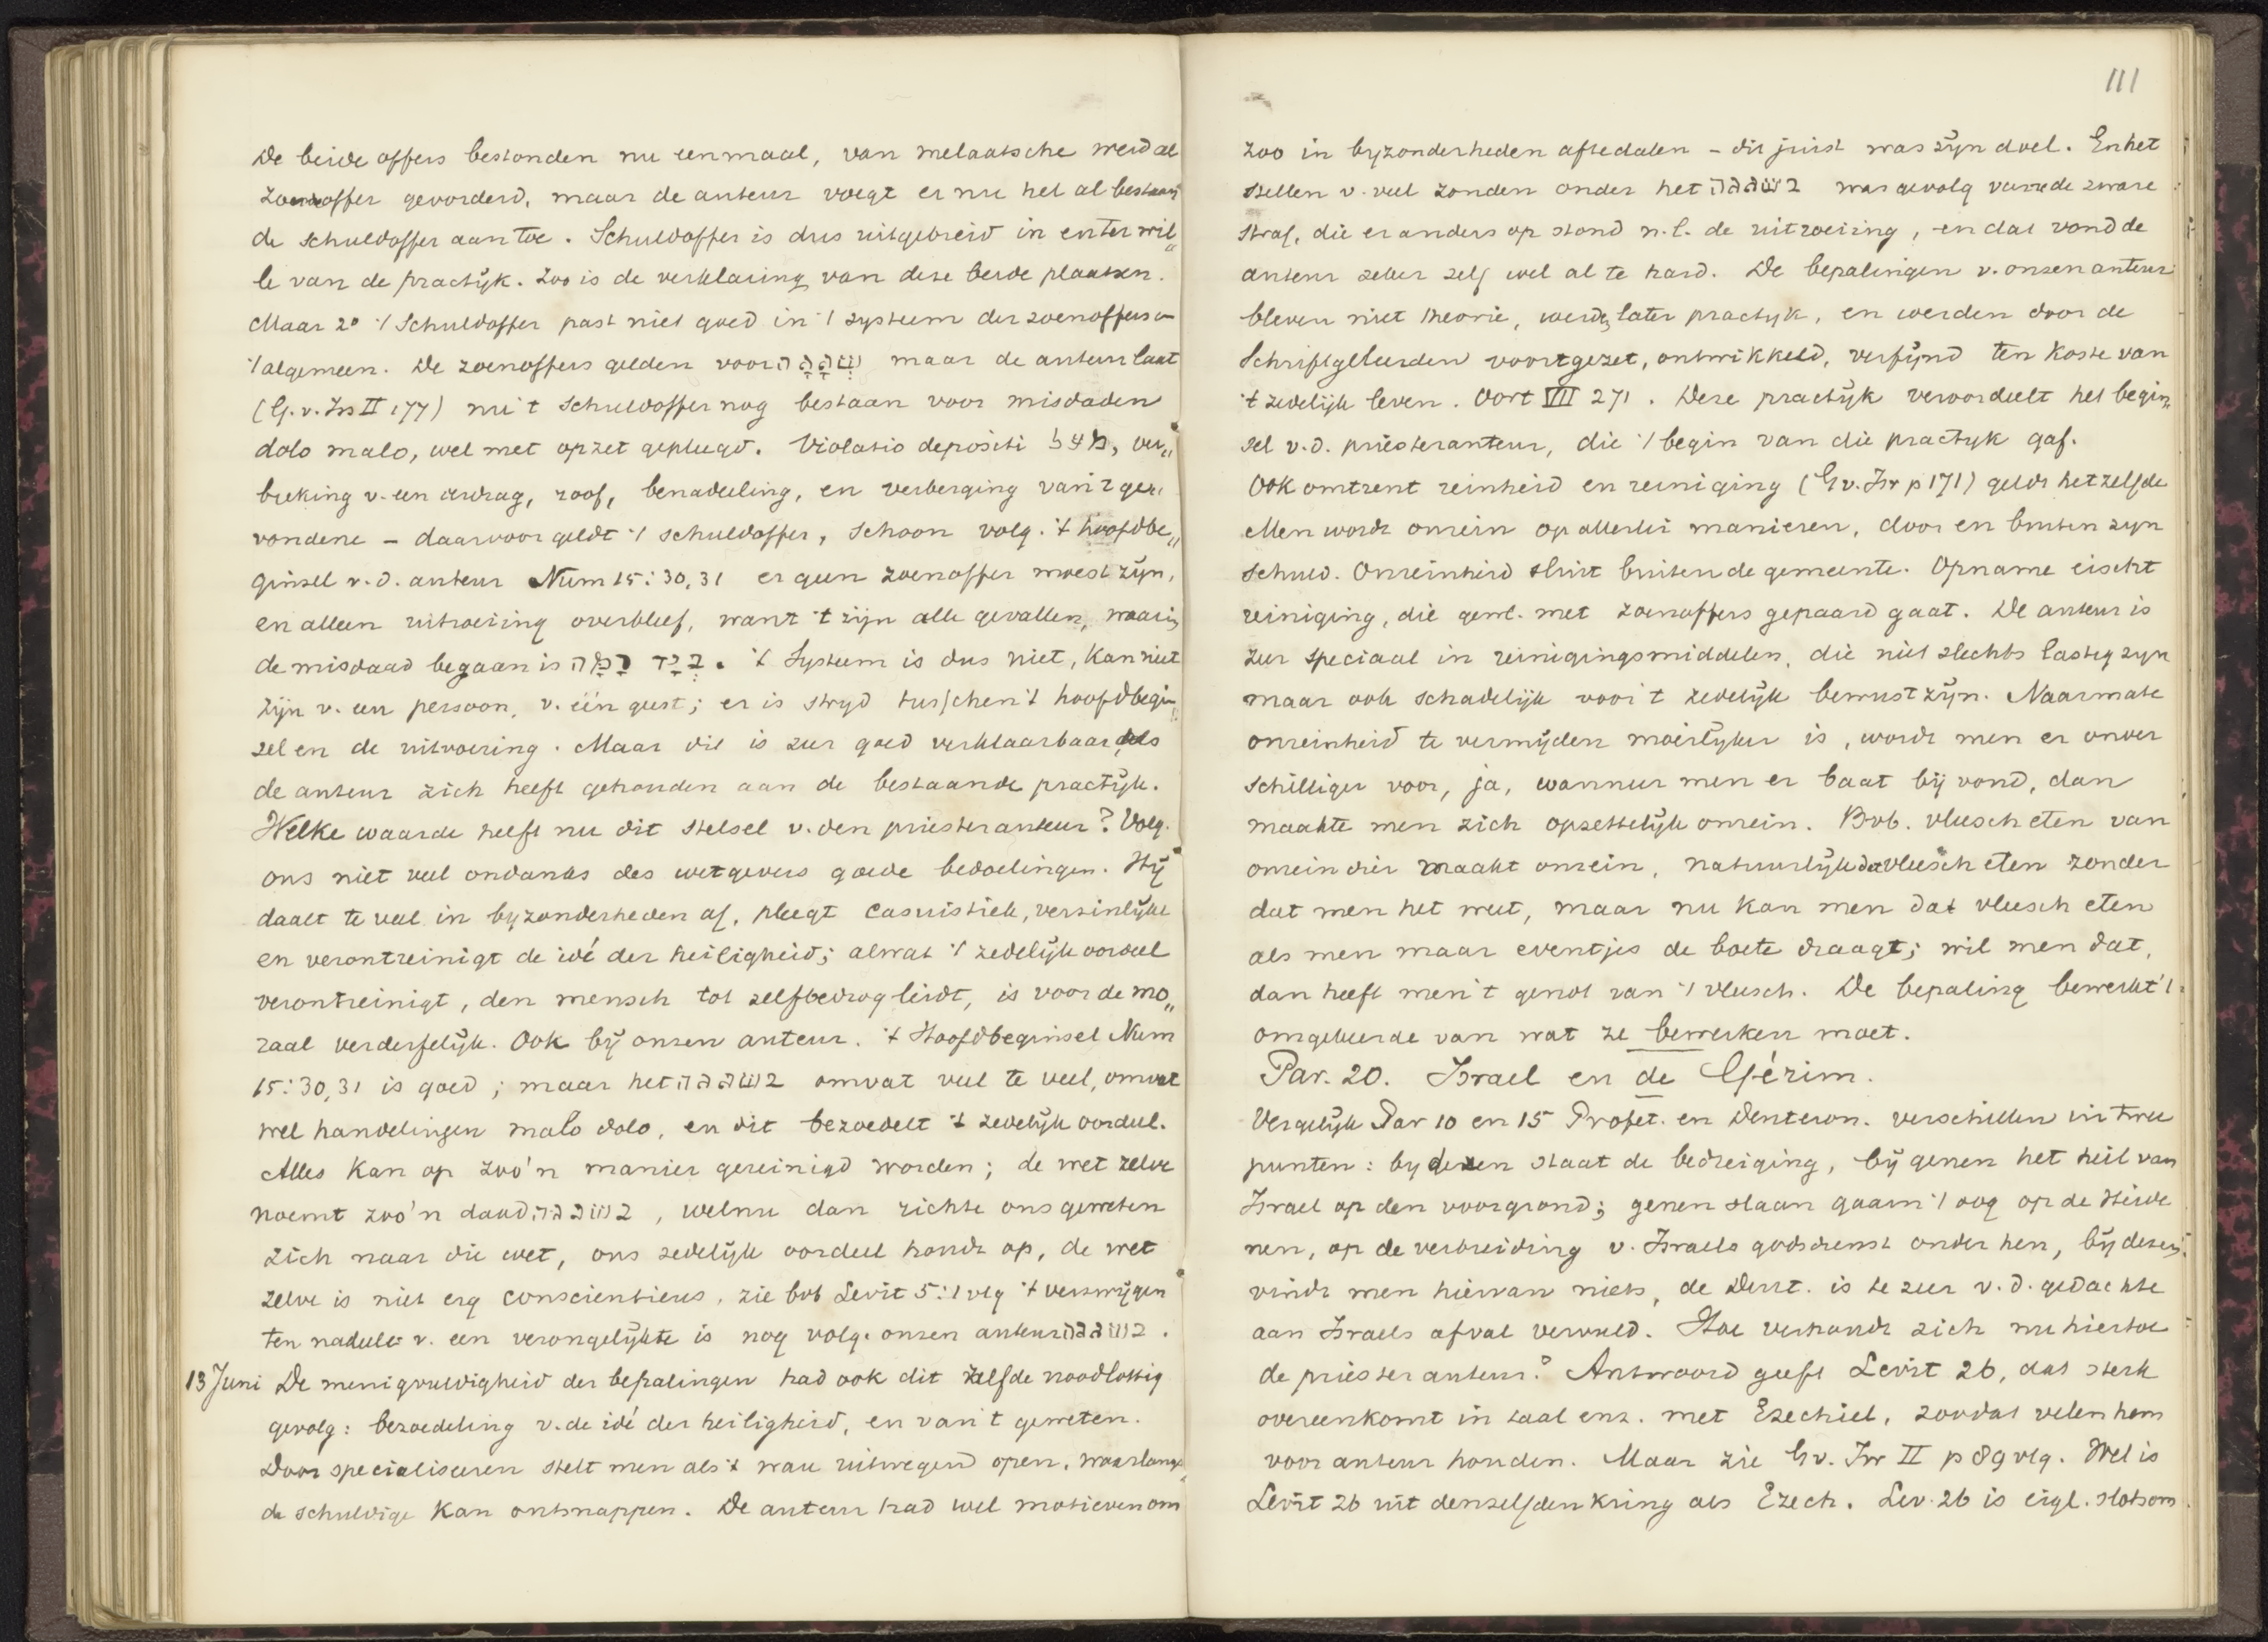 De beide offers bestonden nu eenmaal, van melaatsche werd al
zoenoffer gevorderd, maar de auteur voegt er nu het al bestaan
de schuldoffer aan toe. Schuldoffer is dus uitgebreid in enter wil„
le van de practijk. Zoo is de verklaring van deze beide plaatsen.
Maar 2° 't Schuldoffer past niet goed in 't systeem der zoenoffers in
't algemeen. De zoenoffers gelden voor שְׁגָגָה maar de auteur laat
(G. v. Isr II 177) nu 't schuldoffer nog bestaan voor misdaden
dolo malo, wel met opzet gepleegd. Violatio depositi מעל, ver„
breking v. een verdrag, roof, benadeeling, en verberging van 't ge„
vondene – daarvoor geldt 't schuldoffer, schoon volg. 't hoofdbe„
ginsel v. d. auteur Num 15:30,31 er geen zoenoffer moest zijn,
en alleen uitroeiing overbleef, want 't zijn alle gevallen, waarin
de misdaad begaan is בְּיָד רָמָה. 't Systeem is dus niet, kan niet
zijn v. een persoon, v. één geest; er is strijd tusschen 't hoofdbegin„
sel en de uitvoering. Maar dit is zeer goed verklaarbaar, als
de auteur zich heeft gehouden aan de bestaande practijk.
Welke waarde heeft nu dit stelsel v. den priesterauteur? Volg.
ons niet veel ondanks des wetgevers goede bedoelingen. Hij
daalt te veel in byzonderheden af, pleegt casuistiek, verzinlijkt
en verontreinigt de idé der heiligheid; alwat 't zedelijk oordeel
verontreinigt, den mensch tot zelfbedrog leidt, is voor de mo„
raal verderfelijk. Ook bij onzen auteur. 't Hoofdbeginsel Num
15:30,31 is goed; maar het בשגגה omvat veel te veel, omvat
wel handelingen malo dolo, en dit bezoedelt 't zedelijk oordeel.
Alles kan op zoo'n manier gereinigd worden; de wet zelve
noemt zoo'n daad בשגגה, welnu dan richtte ons geweten
zich naar die wet, ons zedelijk oordeel houdt op, de wet
zelve is niet erg conscientieus, zie bvb Levit 5:1 vlg 't verzwijgen
ten nadeele v. een verongelijkte is nog volg. onzen auteur בשגגה.
13 Juni De menigvuldigheid der bepalingen had ook dit zelfde noodlottig
gevolg: bezoedeling v. de idé der heiligheid, en van 't geweten.
Door specialiseeren stelt men als 't ware uitwegen open, waarlangs
de schuldige kan ontsnappen. De auteur had wel motieven om
111
zoo in byzonderheden aftedalen – dit juist was zijn doel. En het
stellen v. veel zonden onder het בשגגה was gevolg van de zware
straf, die er anders op stond n.l. de uitroeiing, en dat vond de
auteur zeker zelf wel al te hard. De bepalingen v. onzen auteur
bleven niet theorie, werden later practijk, en werden door de
Schriftgeleerden voortgezet, ontwikkeld, verfijnd ten koste van
't zedelijk leven. Oort VII 271. Deze practijk veroordeelt het begin„
sel v. d. priesterauteur, die 't begin van die practyk gaf.
Ook omtrent reinheid en reiniging (G v. Isr p 171) geldt hetzelfde
Men wordt onrein op allerlei manieren, door en buiten zyn
schuld. Onreinheid sluit buiten de gemeente. Opname eischt
reiniging, die gew. met zoenoffers gepaard gaat. De auteur is
zeer speciaal in reinigingsmiddelen, die niet slechts lastig zyn
maar ook schadelijk voor 't zedelijk bewustzijn. Naarmate
onreinheid te vermijden moeilyker is, wordt men er onver
schilliger voor, ja, wanneer men er baat bij vond, dan
maakte men zich opzettelijk onrein. Bvb. vleesch eten van
onrein dier maakt onrein, natuurlijk dat vleesch eten zonder
dat men het weet, maar nu kan men dat vleesch eten
als men maar eventjes de boete draagt; wil men dat,
dan heeft men 't genot van 't vleesch. De bepaling bewerkt 't
omgekeerde van wat ze bewerken moet.
Par. 20. Israel en de Gérim.
Vergelijk Par 10 en 15 Profet. en Deuteron. verschillen in twee
punten: by dezen staat de bedreiging, bij genen het heil van
Israel op den voorgrond; genen slaan gaarn 't oog op de Heide
nen, op de verbreiding v. Israels godsdienst onder hen, bij dezen
vindt men hiervan niets, de Deut. is te zeer v. d. gedachte
aan Israels afval vervuld. Hoe verhoudt zich nu hiertoe
de priesterauteur? Antwoord geeft Levit 26, dat sterk
overeenkomt in taal enz. met Ezechiel, zoodat velen hem
voor auteur houden. Maar zie G v. Isr II p 89 vlg. Wel is
Levit 26 uit denzelfden kring als Ezech. Lev. 26 is eigl.